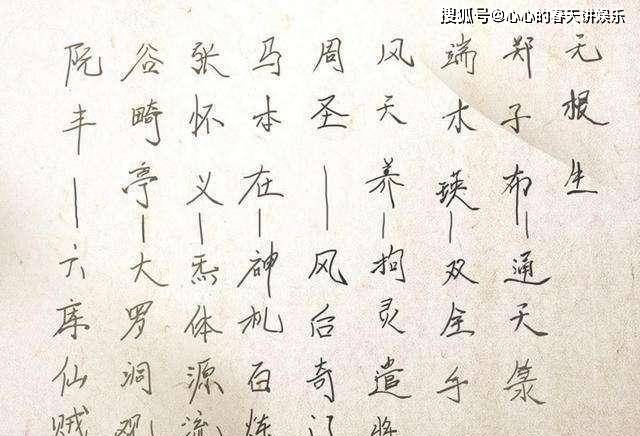 搜狐号@心心的春天讲娱乐
无根生
郑子布—通天箓
端木瑛—双全手
风天养—拘灵遣将
周圣—风后奇门
马本在—神机百炼
张怀义—炁体源流
谷畸亭—大罗洞观
阮丰—六库仙贼